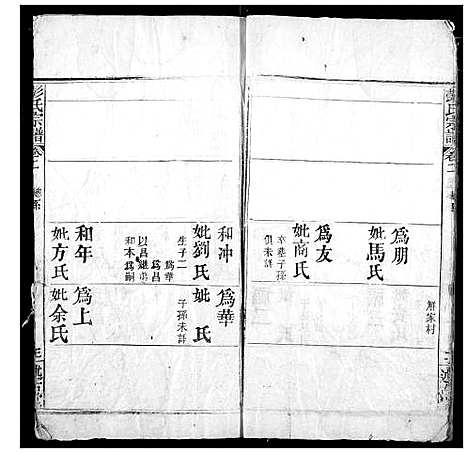 彭氏宗譜
卷二
解家村
為朋
妣馬氏
為友
妣商氏
卒墓子孫
俱未詳
和冲
妣劉氏
生子二
為華
為昌
以昌繼
和本為嗣
為華
妣 氏
子孫未詳
和年
妣方氏
為上
妣余氏
彭氏宗譜
卷二